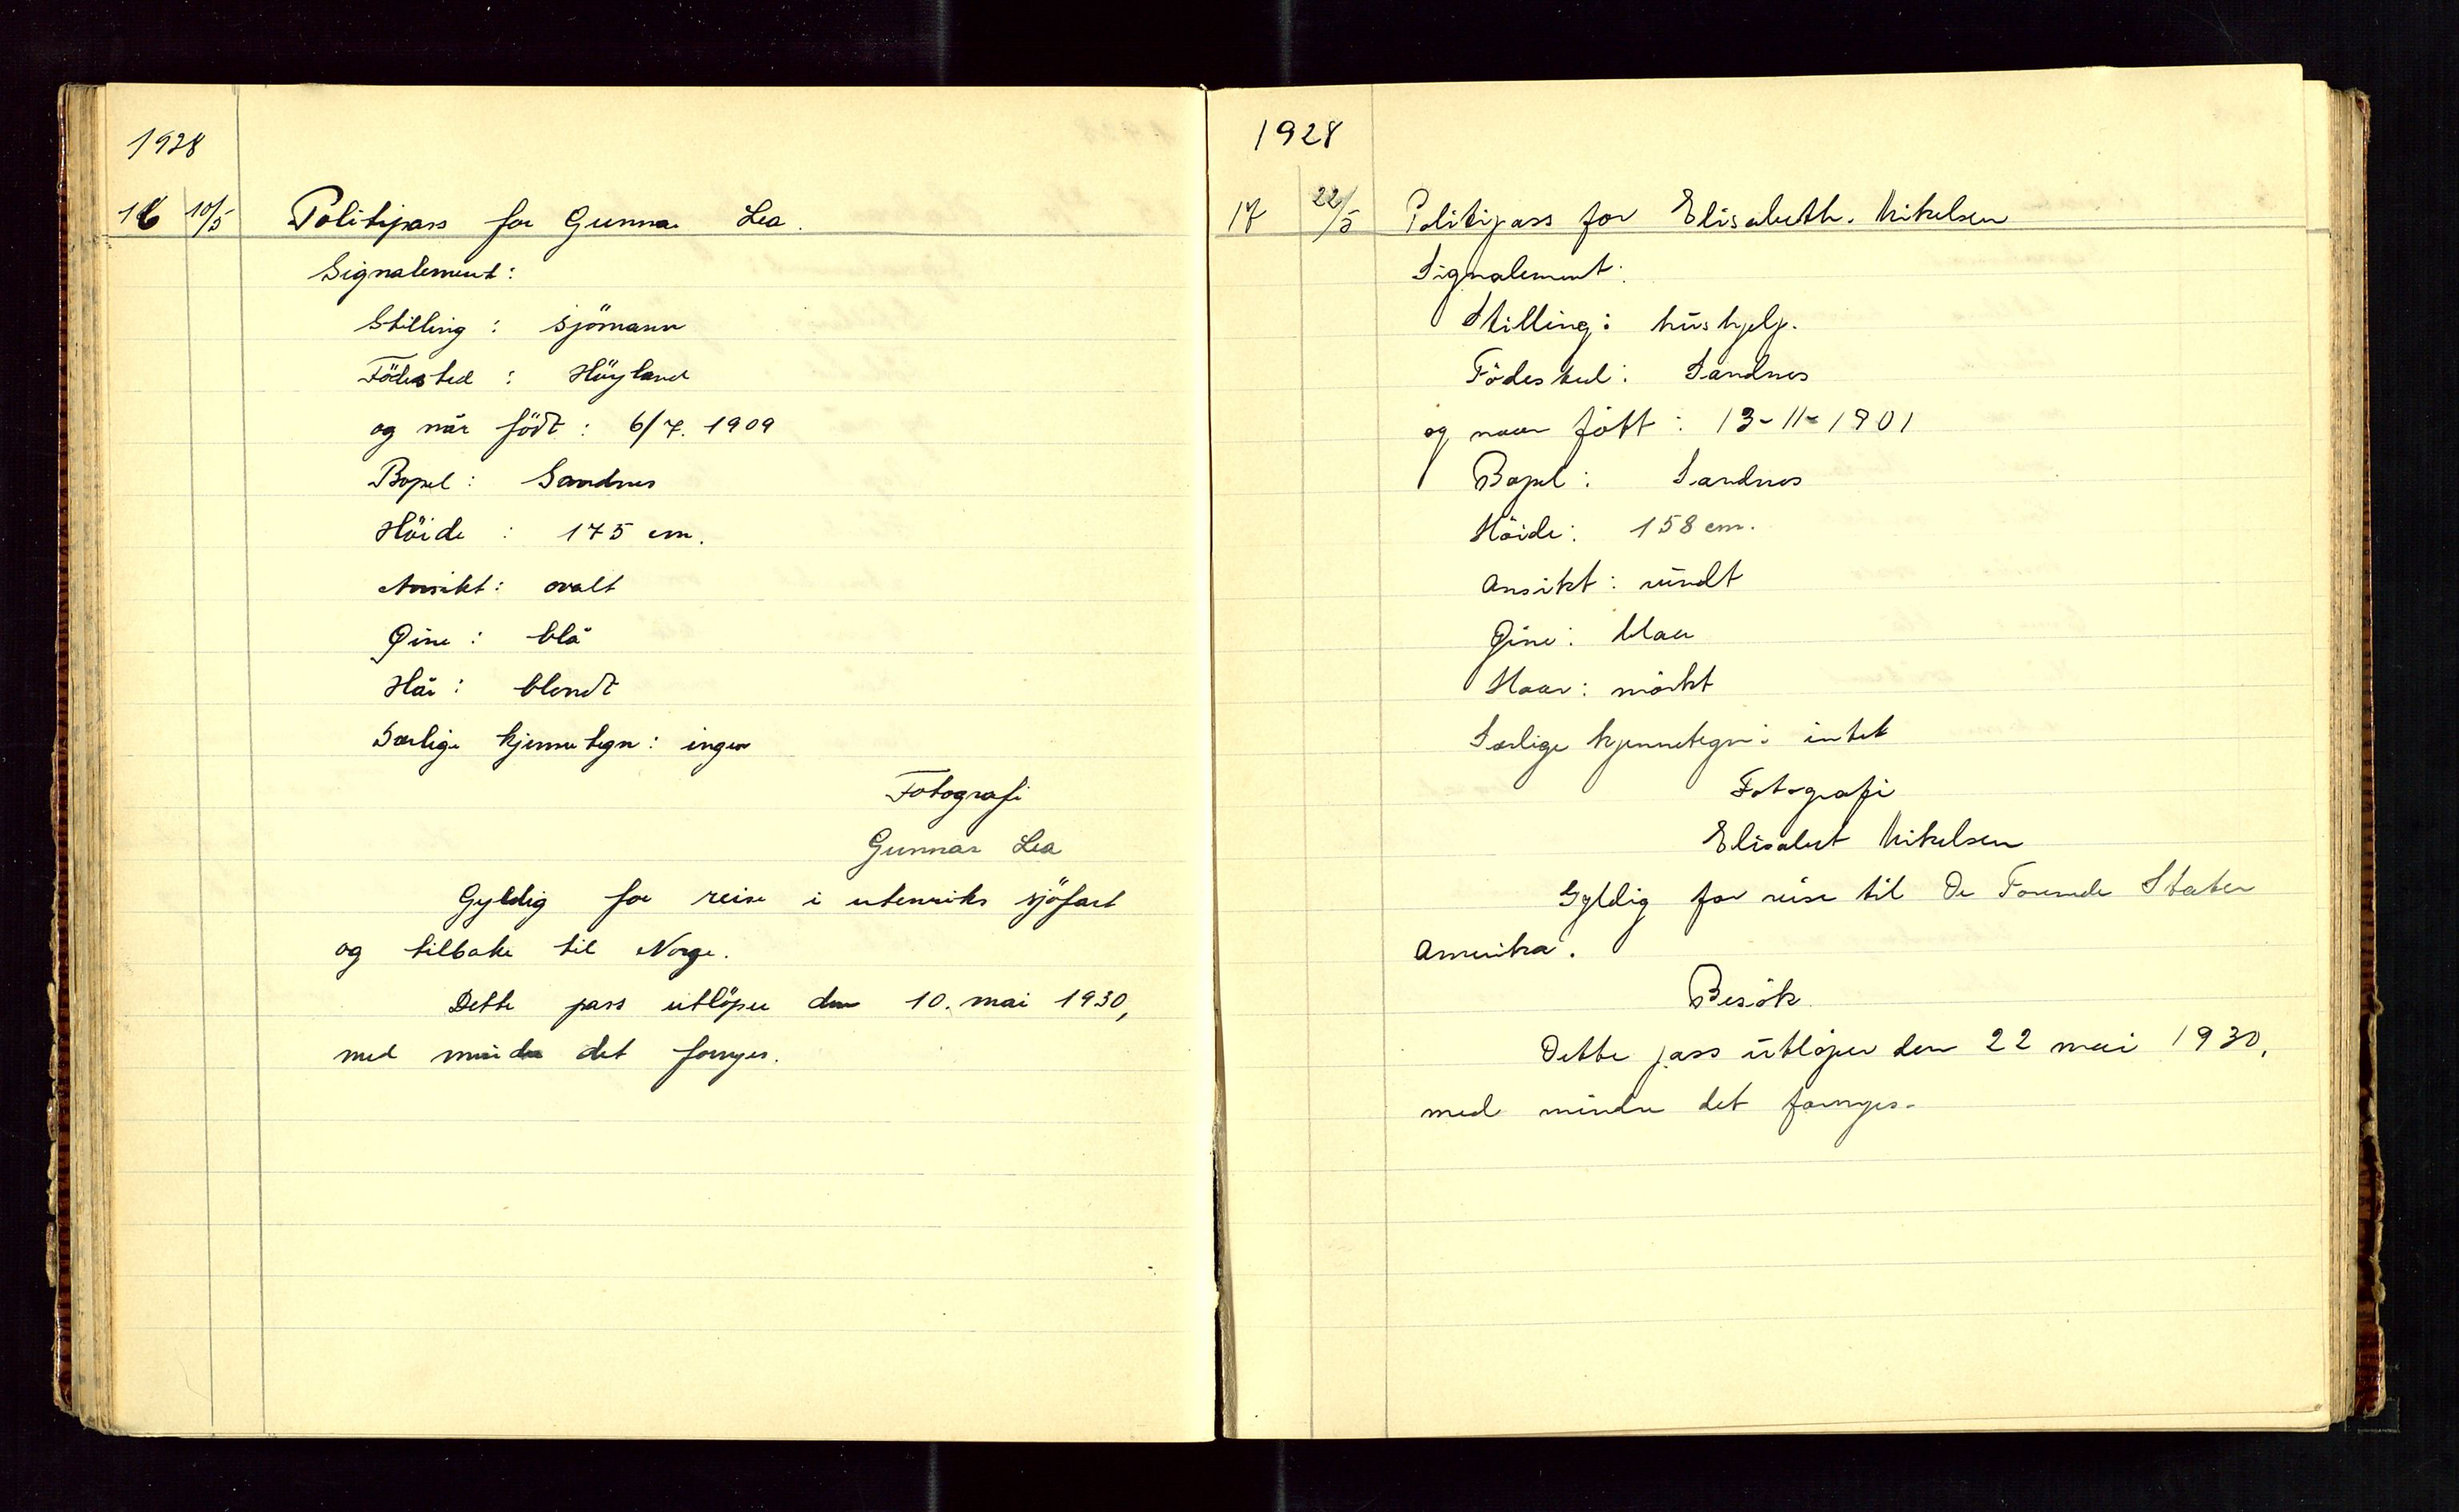 1928
16 10/5 Politipass for Gunnar Lea.
Signalement:
Stilling: sjömann
Födested: Höyland
og når födt: 6/7. 1909
Bopel: Sandnes
Höide: 175 cm.
Ansikt: ovalt
Øine: blå
Hår: blondt
Særlige kjennetegn: ingen
Fotografi
Gunnar Lea
Gyldig for reise i utenriks sjöfart
og tilbake til Norge.
Dette pass utlöper den 10. mai 1930,
med mindre det fornyes.
1928
17 22/5 Politipass for Elisabeth. Mikelsen
Signalement:
Stilling: hushjelp.
Födested: Sandnes
og naar fött: 13-11-1901
Bopel: Sandnes
Höide: 158 cm.
Ansikt: rundt
Øine: blaa
Haar: mörkt
Særlige kjennetegn: intet
Fotografi
Elisabet Mikelsen
Gyldig for reise til De Forenede Stater
Amerika.
Besök.
Dette pass utlöper den 22 mai 1930,
med mindre det fornyes.